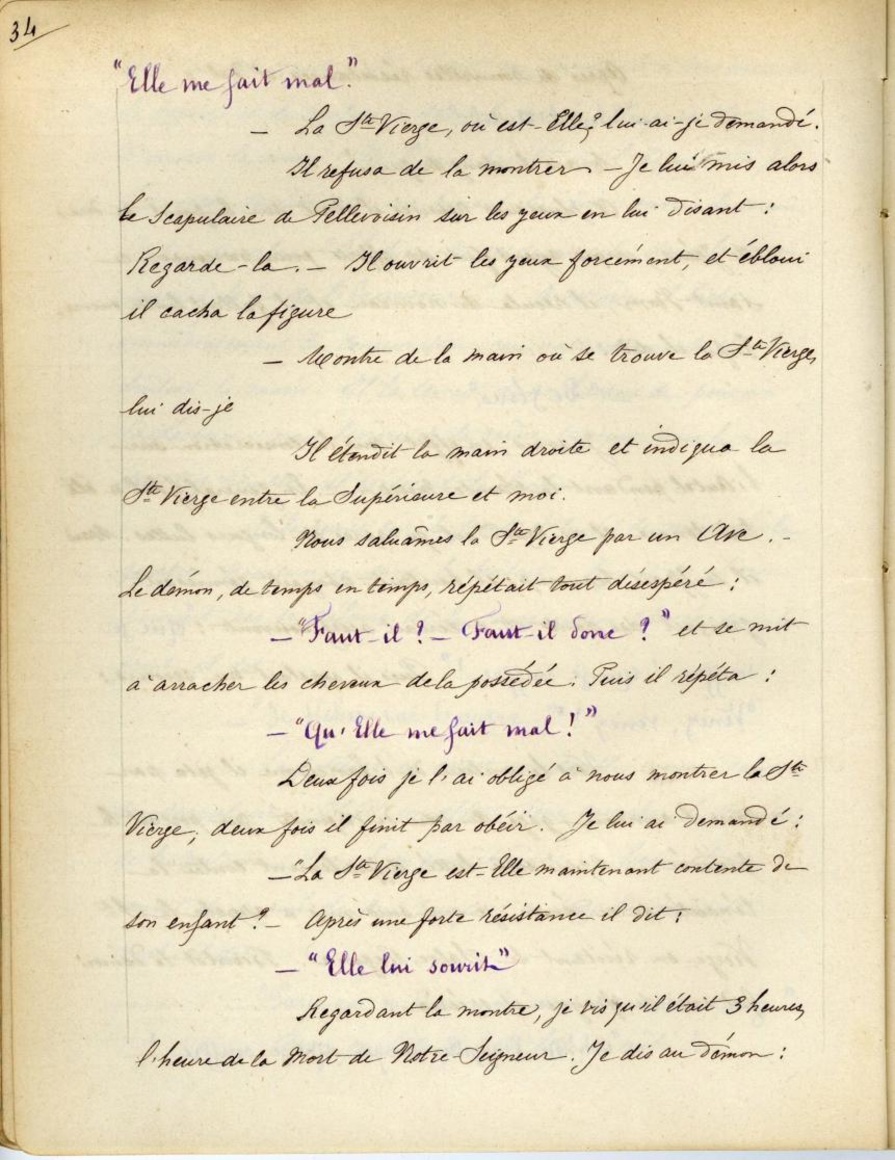 34
"Elle me fait mal".
— La Ste Vierge, où est-Elle? lui-ai-je demandé.
Il refusa de la montrer — Je lui mis alors
le Scapulaire de Pellevoisin sur les yeux en lui disant :
Regarde-la. — Il ouvrit les yeux forcément, et ébloui
il cacha la figure
— Montre de la main où se trouve la Ste Vierge,
lui dis-je
Il étendit la main droite et indiqua la
Ste Vierge entre la Supérieure et moi.
Nous saluâmes la Ste Vierge par un Ave. -
Le démon, de temps en temps, répétait tout désespéré :
— "Faut-il ? — Faut-il donc ?" et se mit
à arracher les cheveux de la possédée. Puis il répéta :
— "Qu'Elle me fait mal !"
Deux fois je l'ai obligé à nous montrer la Ste
Vierge, deux fois il finit par obéir. Je lui ai demandé :
— "La Ste Vierge est-Elle maintenant contente de
son enfant ? — Après une forte résistance il dit :
— "Elle lui sourit"
Regardant la montre, je vis qu'il était 3 heures,
l'heure de la Mort de Notre-Seigneur. Je dis au démon :